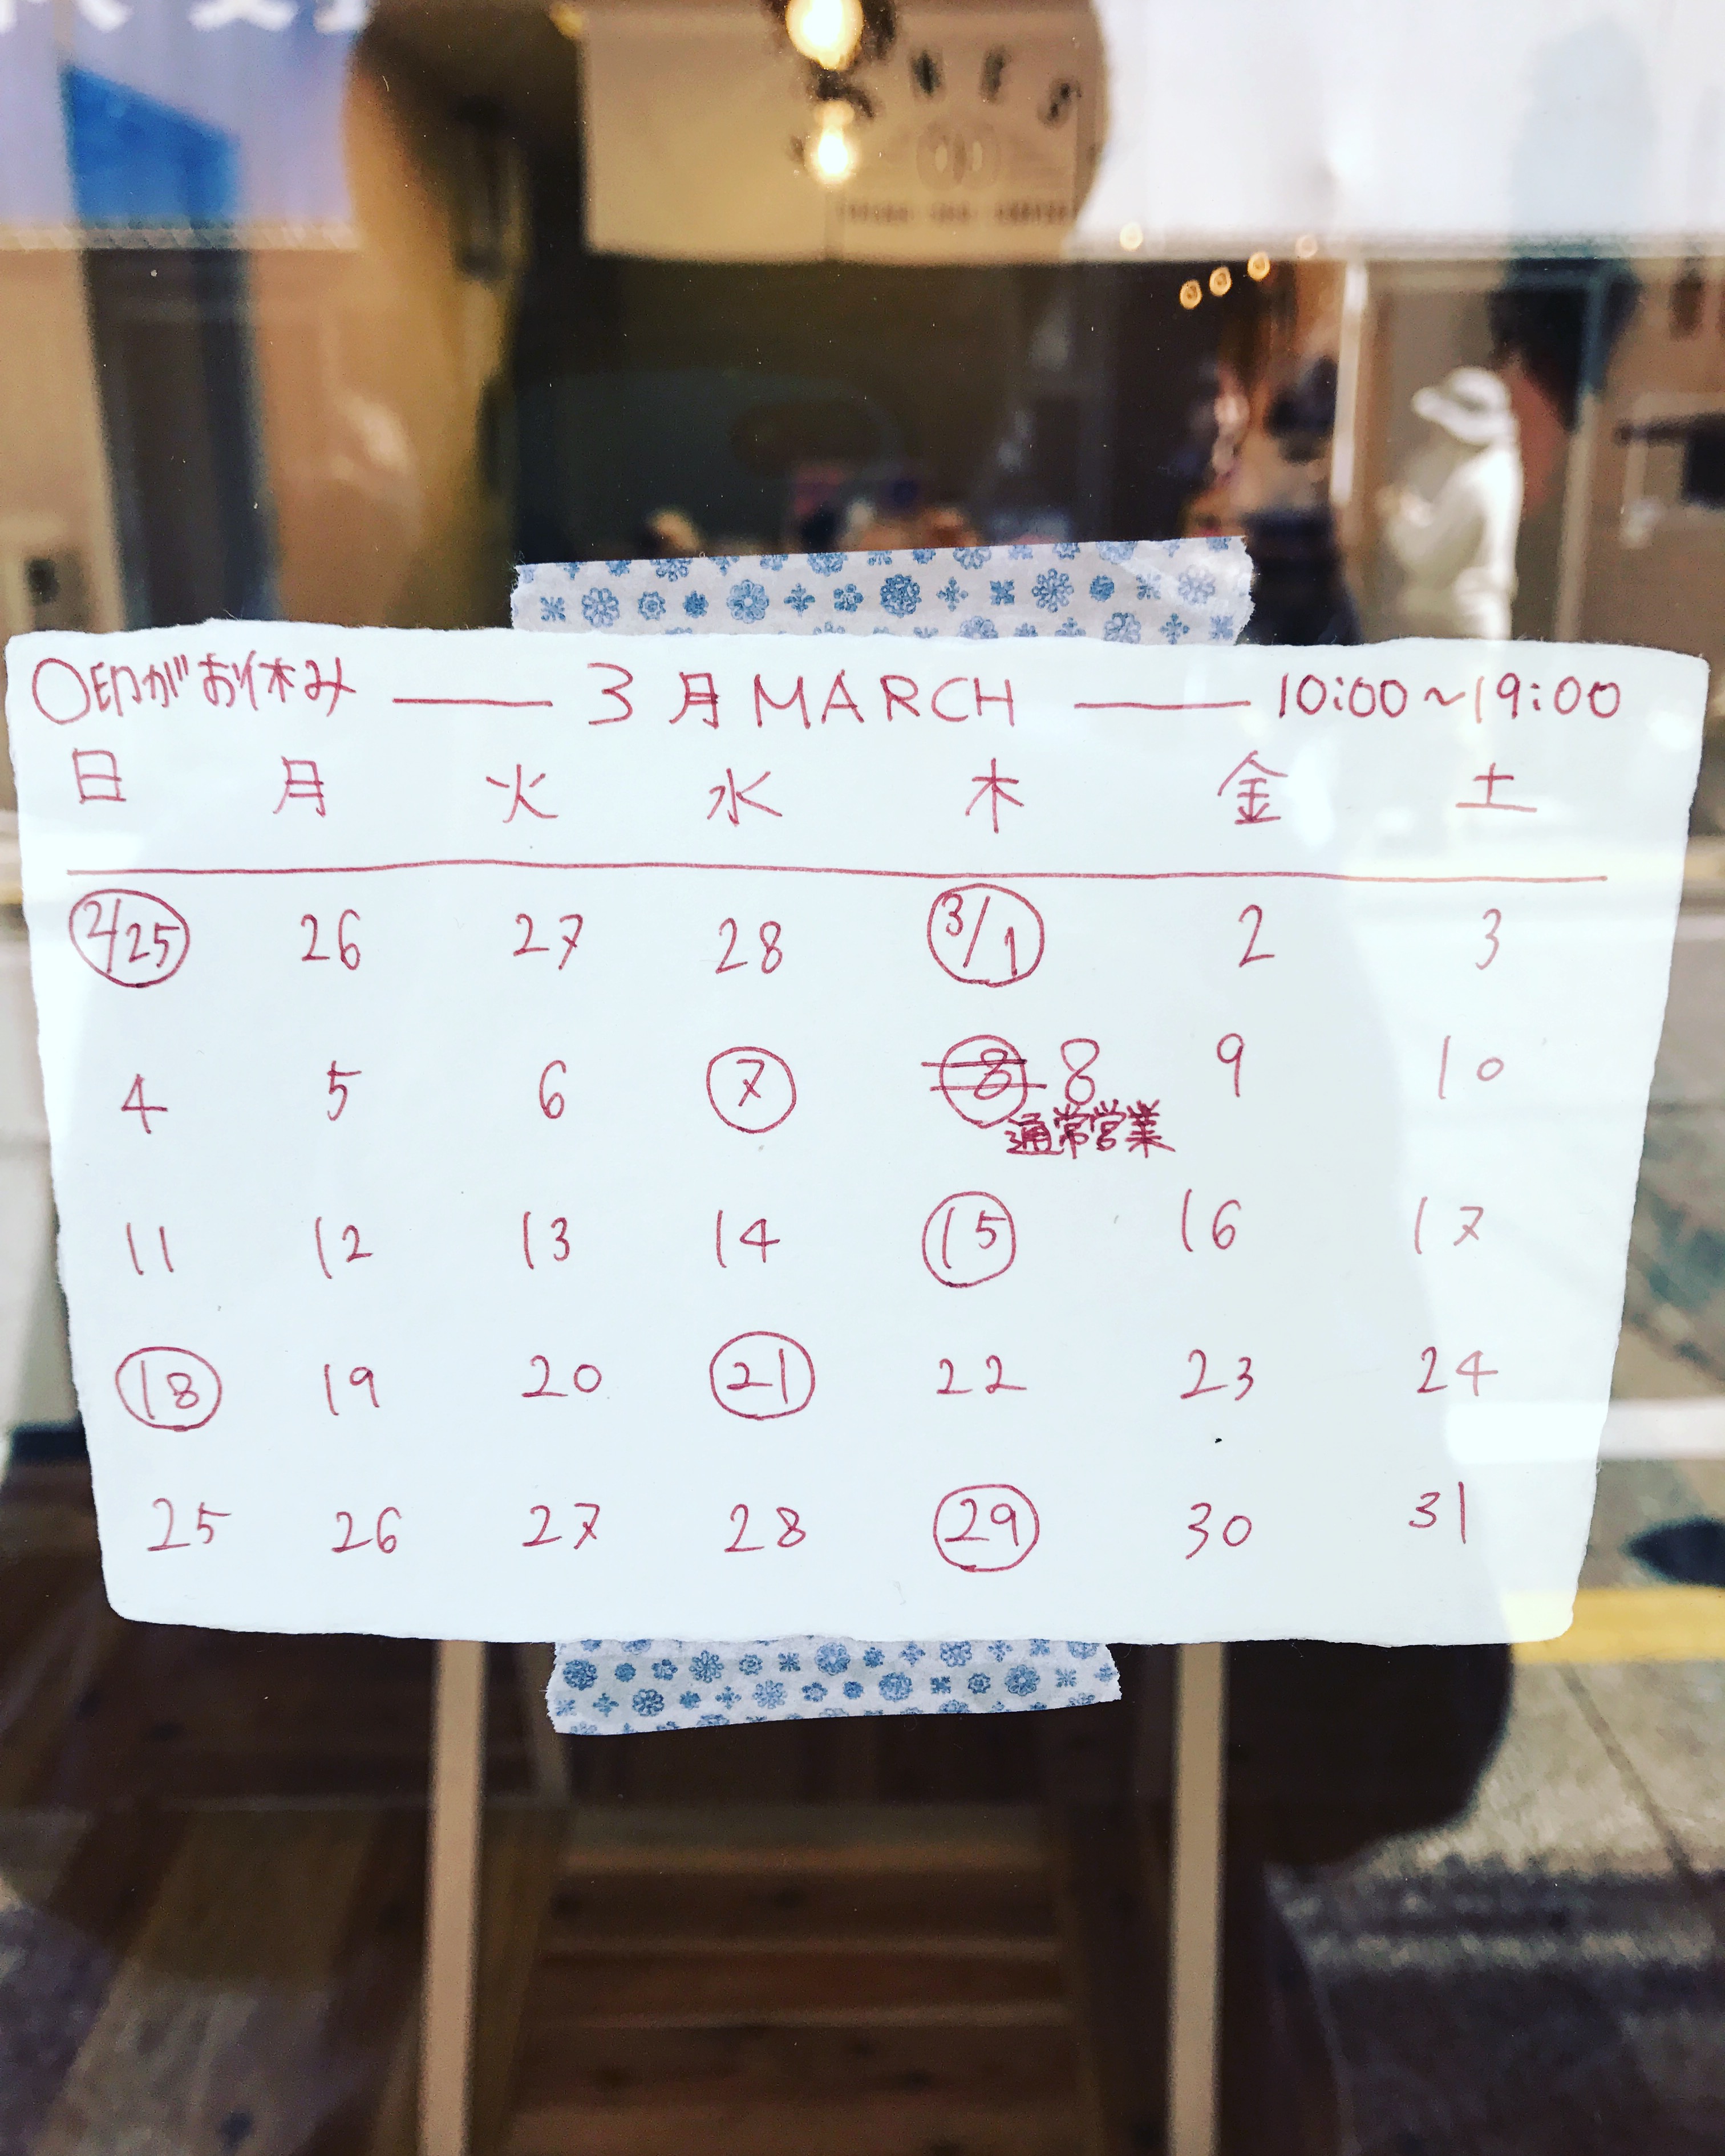 NES
〇印がお休み — 3月 MARCH — 10:00～19:00
日 月 火 水 木 金 土
2/25 26 27 28 3/1 2 3
4 5 6 7 8 8 9 10
通常営業
11 12 13 14 15 16 17
18 19 20 21 22 23 24
25 26 27 28 29 30 31